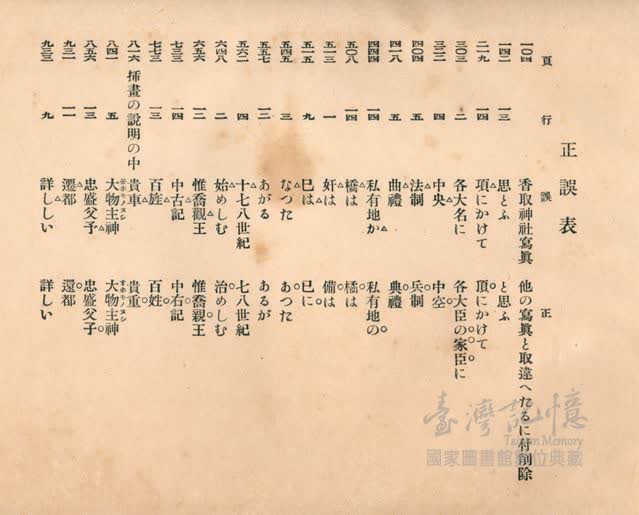 正誤表
頁 行 誤 正
一〇四 香取神社寫眞 他の寫眞と取違へたるに付削除
一四二 一三 思とふ と思ふ
二一九 一四 項にかけて 頂にかけて
三〇三 二 各大名に 各大臣の家臣に
三二二 四 中央 中空
四〇四 五 法制 兵制
四一八 五 曲禮 典禮
四四四 一四 私有地か 私有地の
五〇八 一四 橋は 橘は
五一三 一 奸は 備は
五一五 九 巳は 巳に
五四五 三 なつた あつた
五五七 一二 あがる あるが
五六二 四 十七八世紀 七八世紀
六四八 二 始めしむ 治めしむ
六五六 一二 惟喬觀王 惟喬親王
七三三 一四 中古記 中右記
七七三 一三 百旌 百姓
八一六 挿畫の說明の中 貴車 貴重
八四一 五 大物主神 大物主神
八五六 一三 忠盛父子 忠盛父子
九三一 一一 遷都 還都
九三三 九 詳ししい 詳しい
臺灣記憶
Taiwan Memory
國家圖書館數位典藏